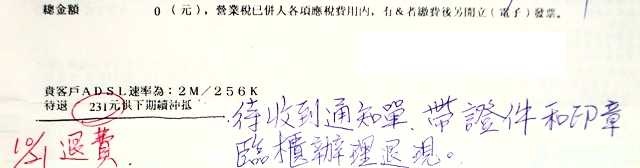 總金額 0(元),營業稅已併入各項應稅費用內,有&者繳費後另開立(電子)發票。
貴客戶ADSL速率為:2M/256K
待退 231元供下期續沖抵
待收到通知單、帶證件和印章
10/1 退費.
臨櫃辦理退現。